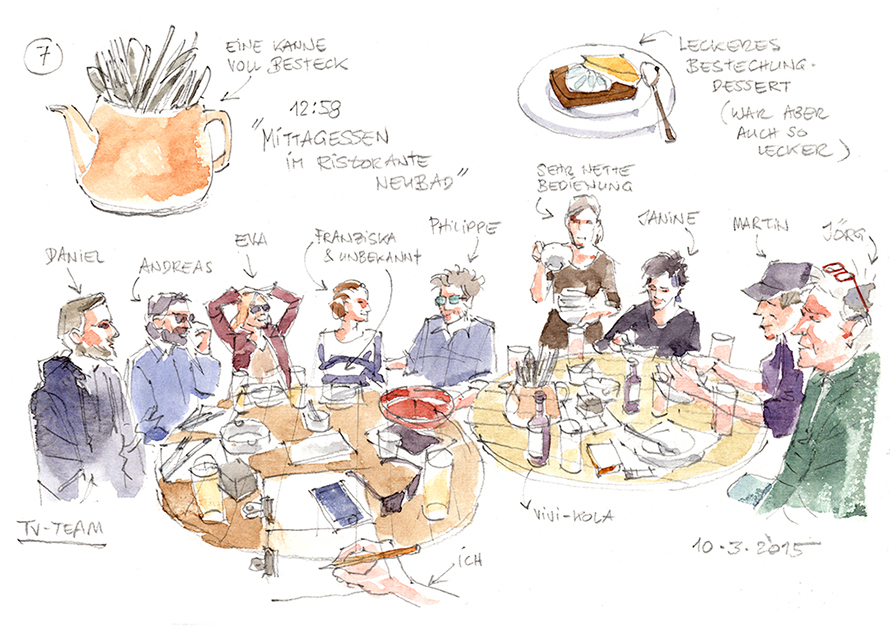 7
EINE KANNE
VOLL BESTECK
12:58
"MITTAGESSEN
IM RISTORANTE
NEUBAD"
LECKERES
BESTECHUNG-
DESSERT
(WAR ABER
AUCH SO
LECKER)
SEHR NETTE
BEDIENUNG
DANIEL
ANDREAS
EVA
FRANZISKA
& UNBEKANNT
PHILIPPE
JANINE
MARTIN
JÖRG
TV-TEAM
VIVI-KOLA
ICH
10.3.2015